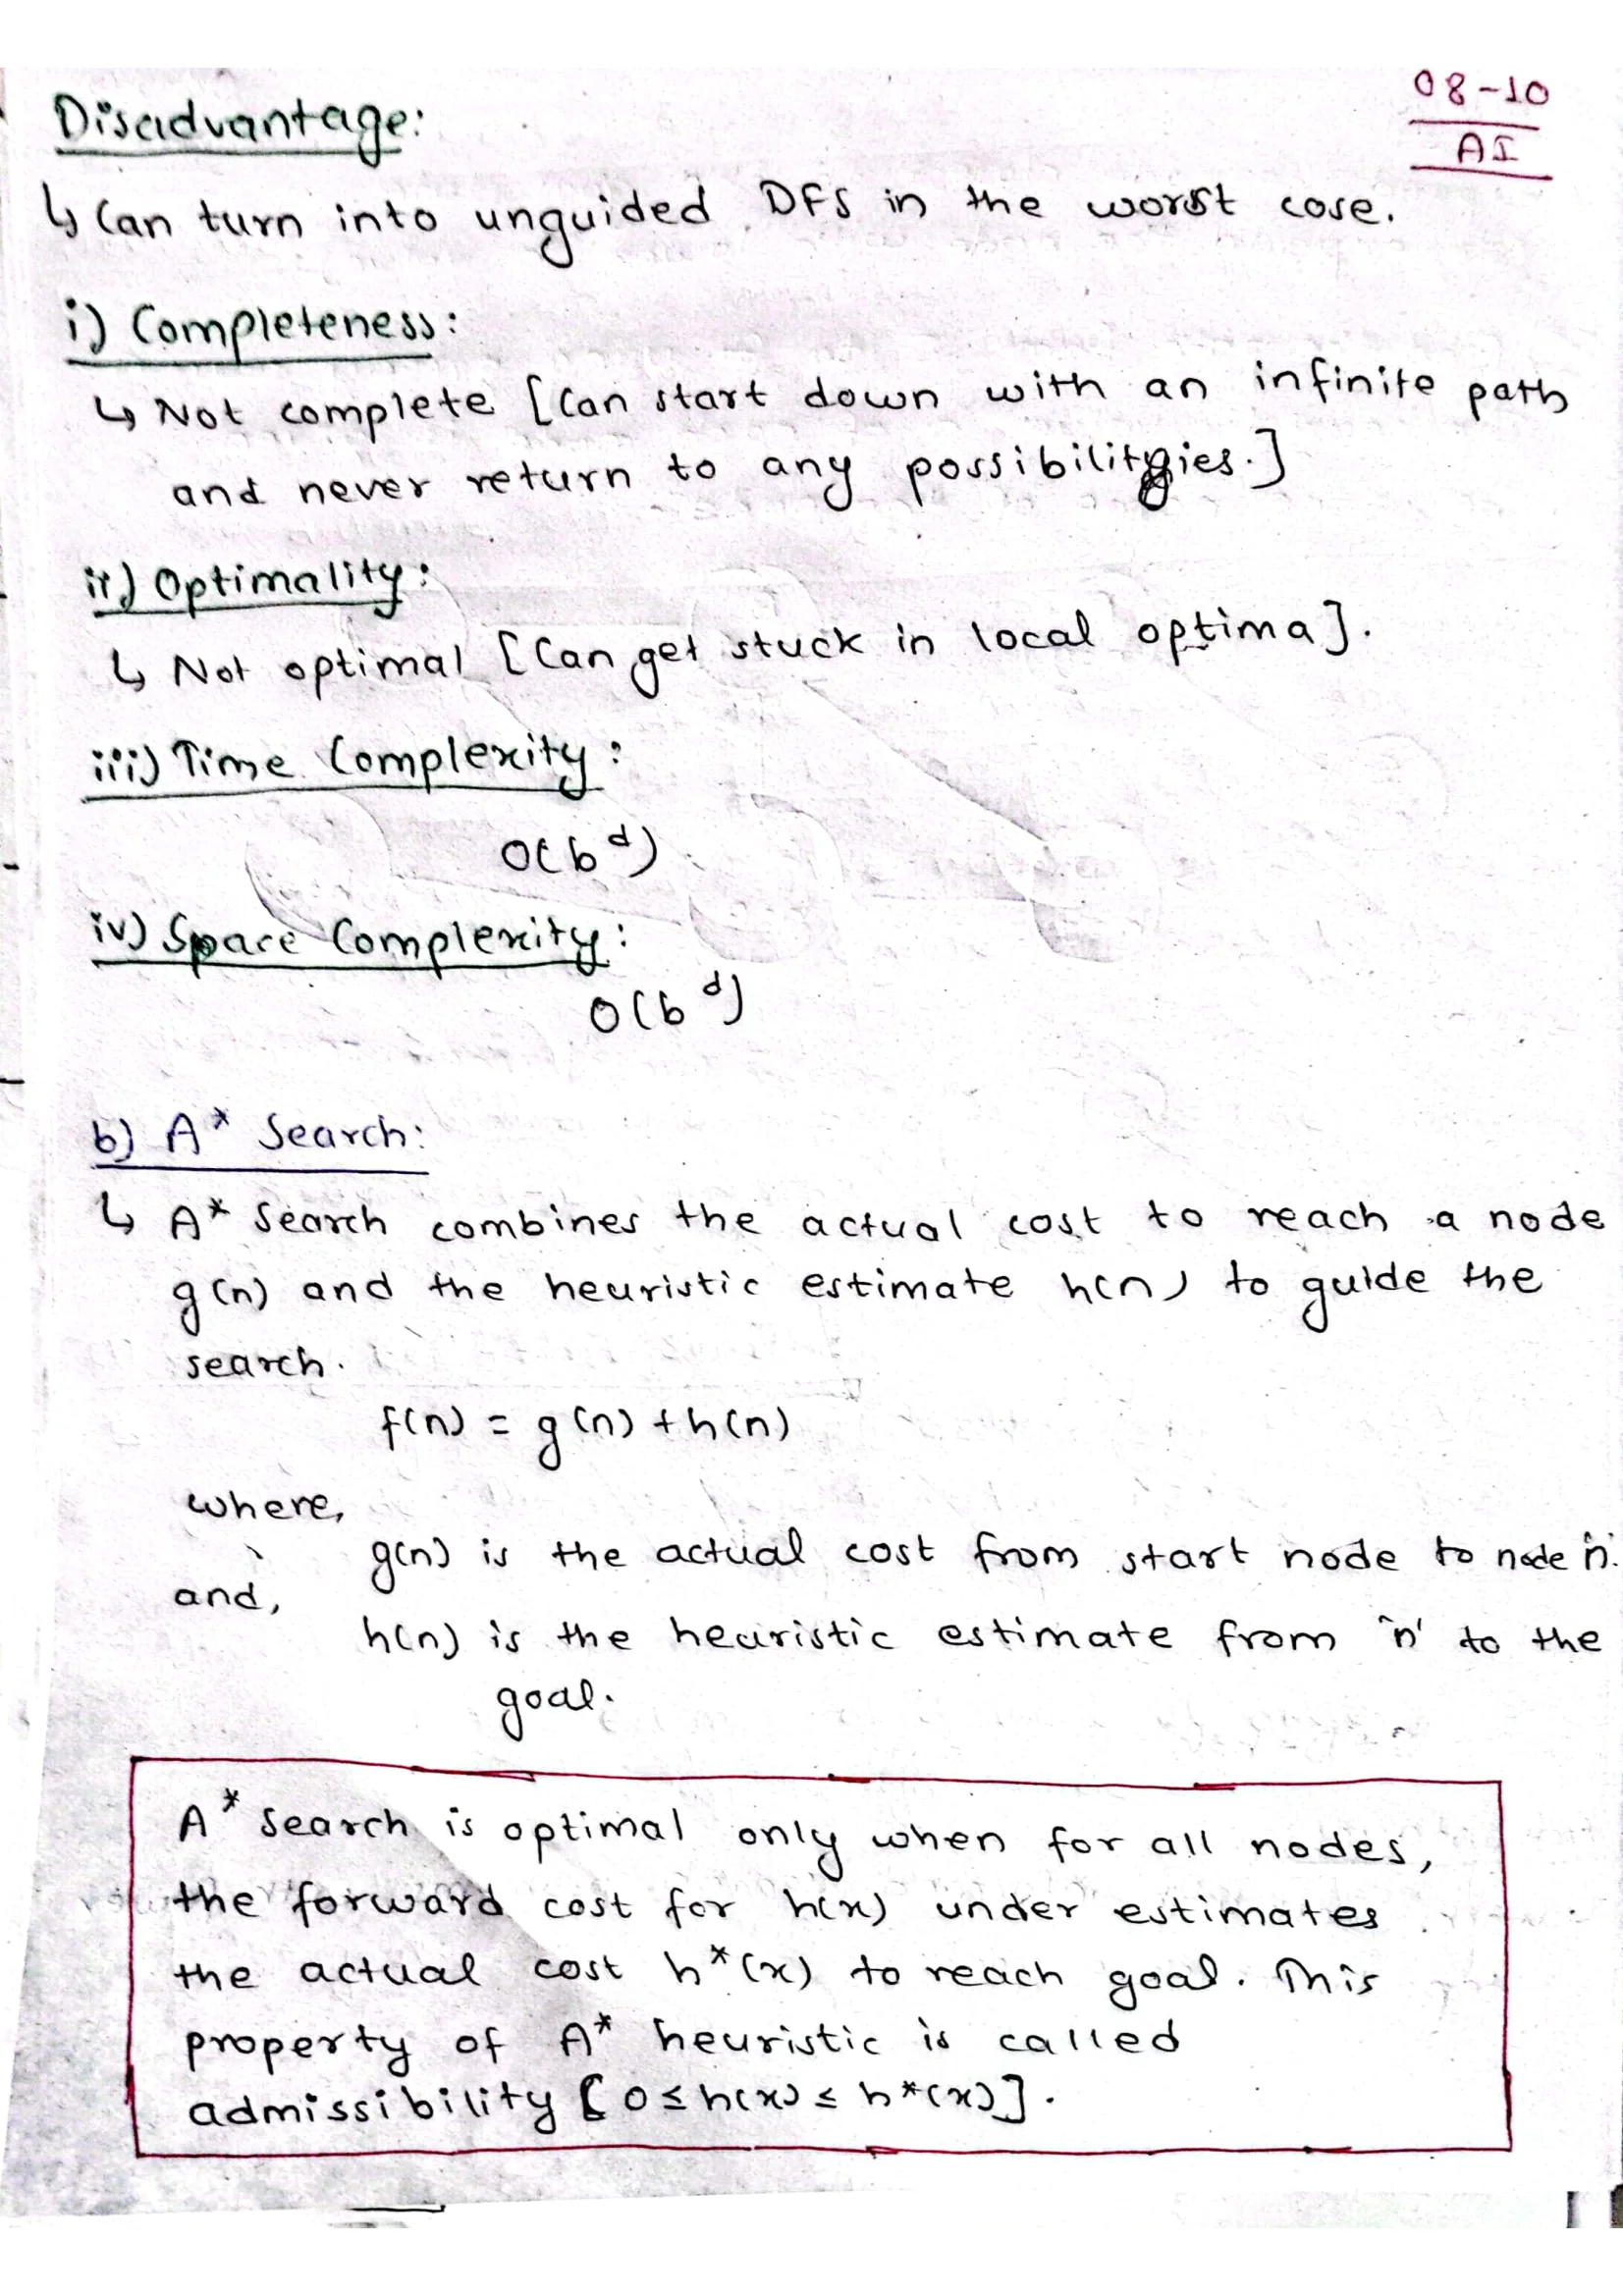 08-10
AI
Disadvantage:
↳ Can turn into unguided DFS in the worst case.
i) Completeness:
↳ Not complete [Can start down with an infinite path
and never return to any possibilities.]
ii) Optimality:
↳ Not optimal [Can get stuck in local optima].
iii) Time Complexity:
O(b^d)
iv) Space Complexity:
O(b^d)
b) A* Search:
↳ A* Search combines the actual cost to reach a node
g(n) and the heuristic estimate h(n) to guide the
search.
f(n) = g(n) + h(n)
where,
g(n) is the actual cost from start node to node 'n'.
and,
h(n) is the heuristic estimate from 'n' to the
goal.
A* Search is optimal only when for all nodes,
the forward cost for h(x) under estimates
the actual cost h*(x) to reach goal. This
property of A* heuristic is called
admissibility [0 ≤ h(x) ≤ h*(x)].